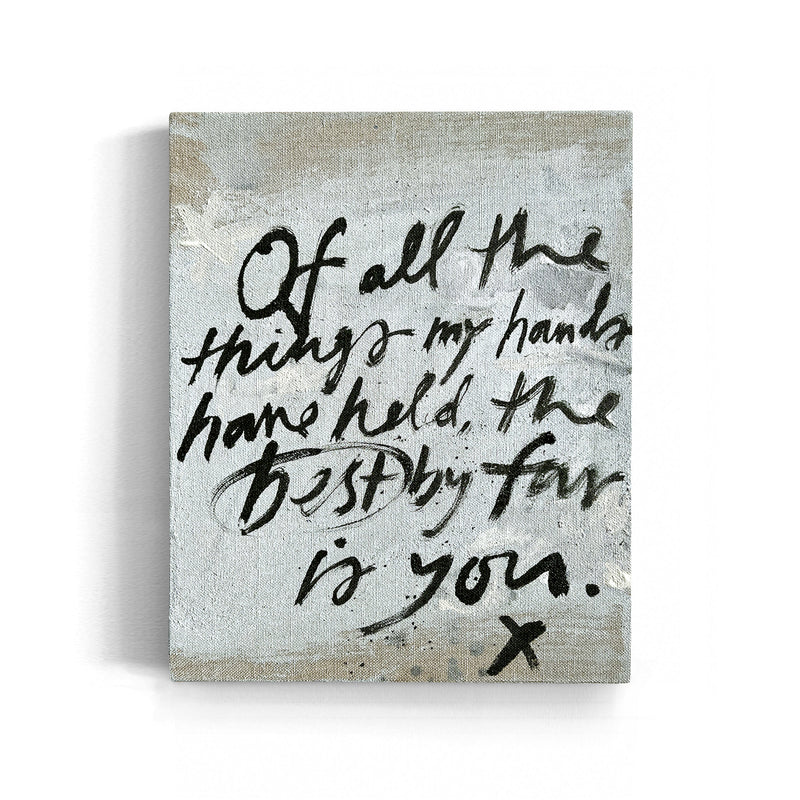 Of all the
things my hands
have held, the
best by far
is you.
x